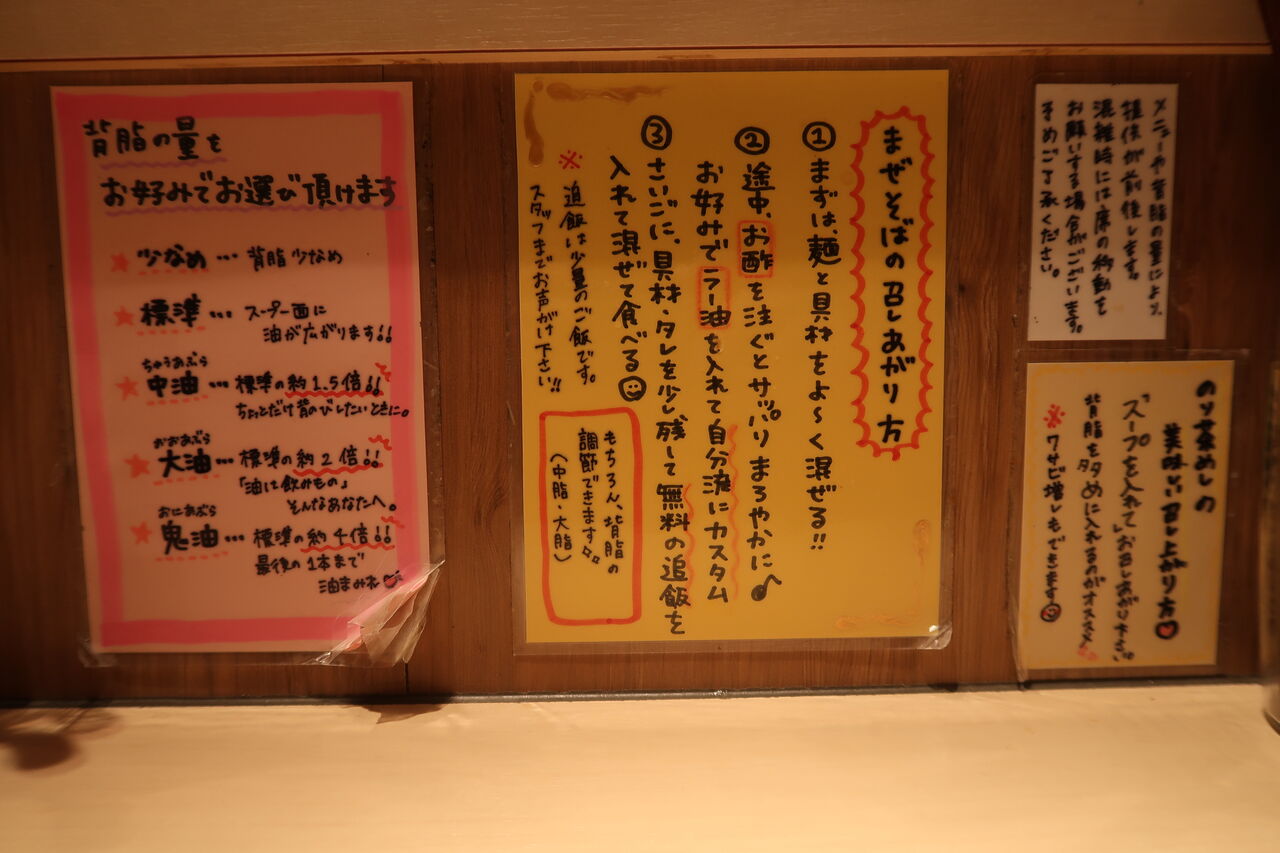 背脂の量を
お好みでお選び頂けます
★少なめ…背脂少なめ
★標準…スープ一面に
油が広がります!!
ちゅうあぶら
★中油…標準の約1.5倍!!
ちょっとだけ背のびしたいときに。
おおあぶら
★大油…標準の約2倍!!
「油は飲みもの」
そんなあなたへ。
おにあぶら
★鬼油…標準の約4倍!!
最後の1本まで
油まみれ♥
まぜそばの召しあがり方
①まずは、麺と具材をよ〜く混ぜる!!
②途中、お酢を注ぐとサッパリまろやかに♪
お好みでラー油を入れて自分流にカスタム
③さいごに、具材・タレを少し残して無料の追飯を
入れて混ぜて食べる☺
※追飯は少量のご飯です。
スタッフまでお声がけ下さい!!
もちろん、背脂の
調節できます♪
(中脂・大脂)
メニューや背脂の量により、
提供が前後します。
混雑時には席の移動を
お願いする場合がございます。
予めご了承ください。
のり茶めしの
美味しい召し上がり方♥
"スープを入れて"お召しあがり下さい。
背脂を多めに入れるのがオススメ!!
※ワサビ増しもできます☺